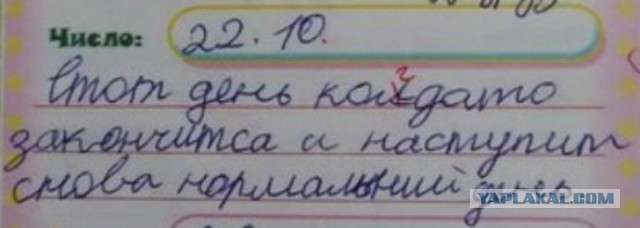 Число: 22.10.
Етот день когдато
закончитса и наступит
снова нормальний день
YAPLAKAL.COM